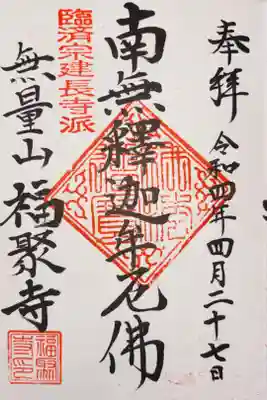 奉拝
令和四年四月二十七日
南無釋迦牟尼佛
臨済宗建長寺派
無量山
福聚寺
福聚寺印